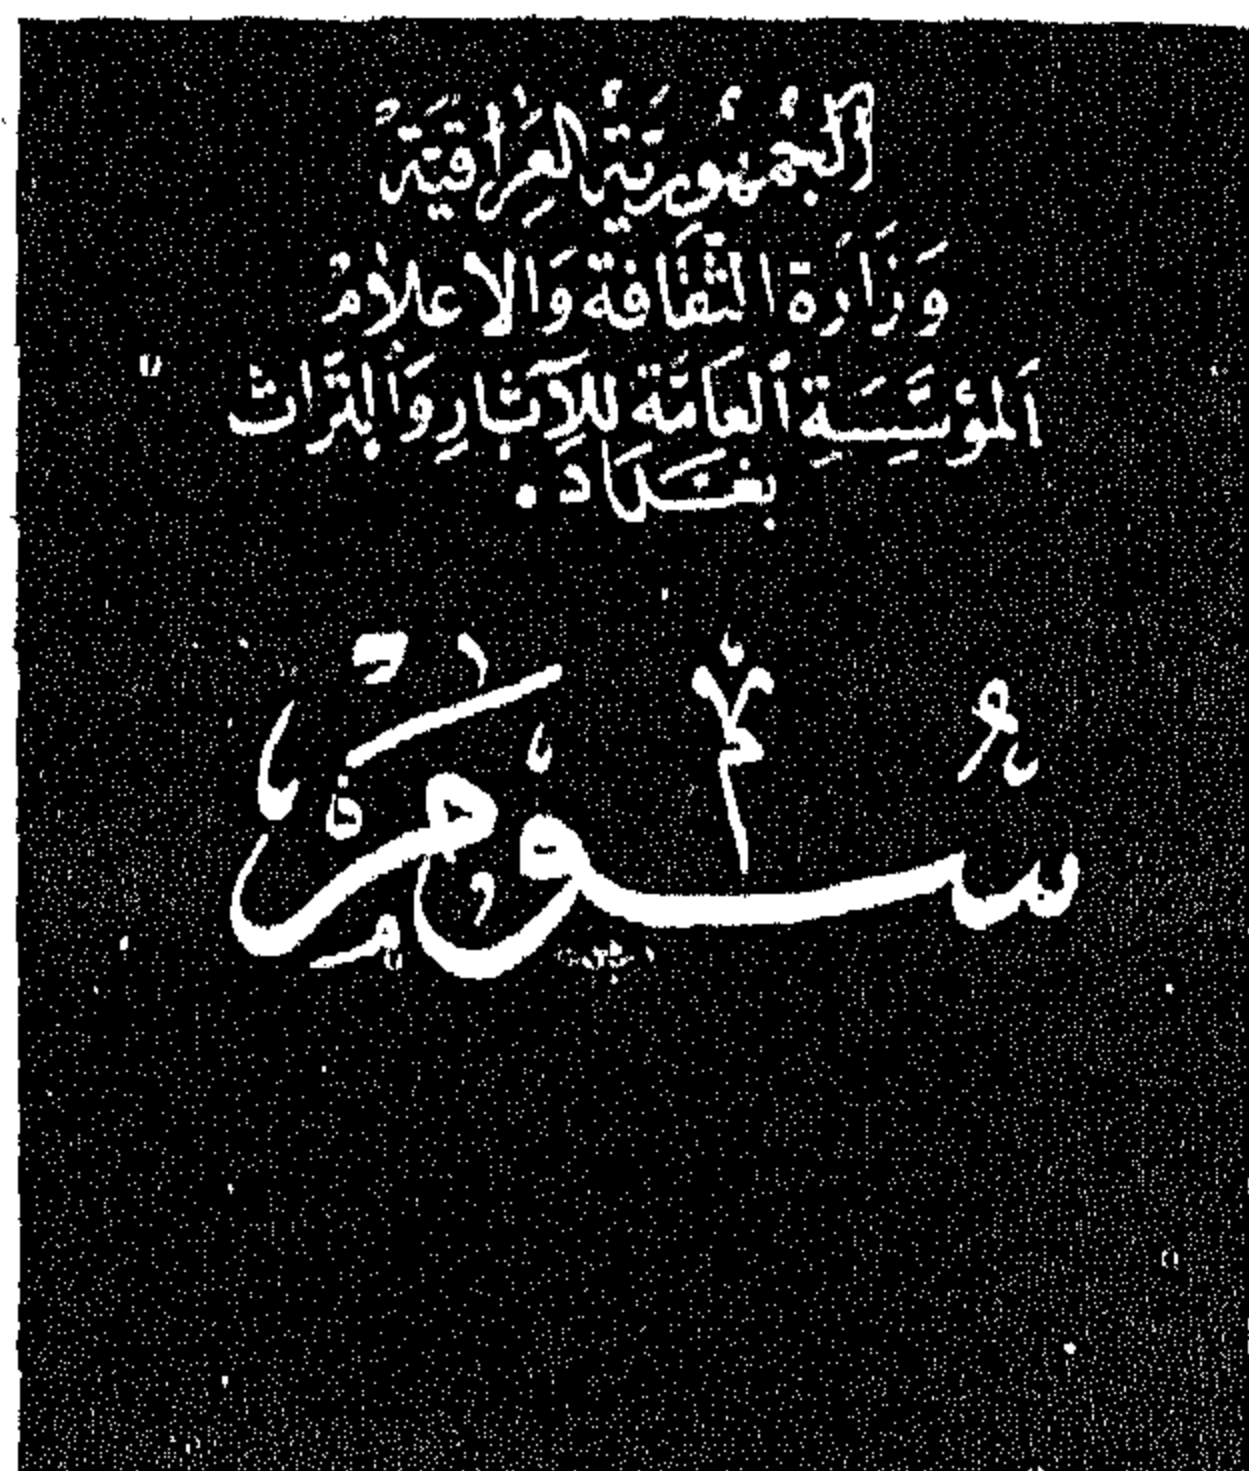 الجُمْهُوريَّةُ العِرَاقيَّةُ
وَزَارَة الثَّقَافة وَالاعلامْ
اَلمؤسَّسَةِ اَلعَامَّة للِآثارِ وَالتُّرَاث
بغَدَاد.
سُومَرْ